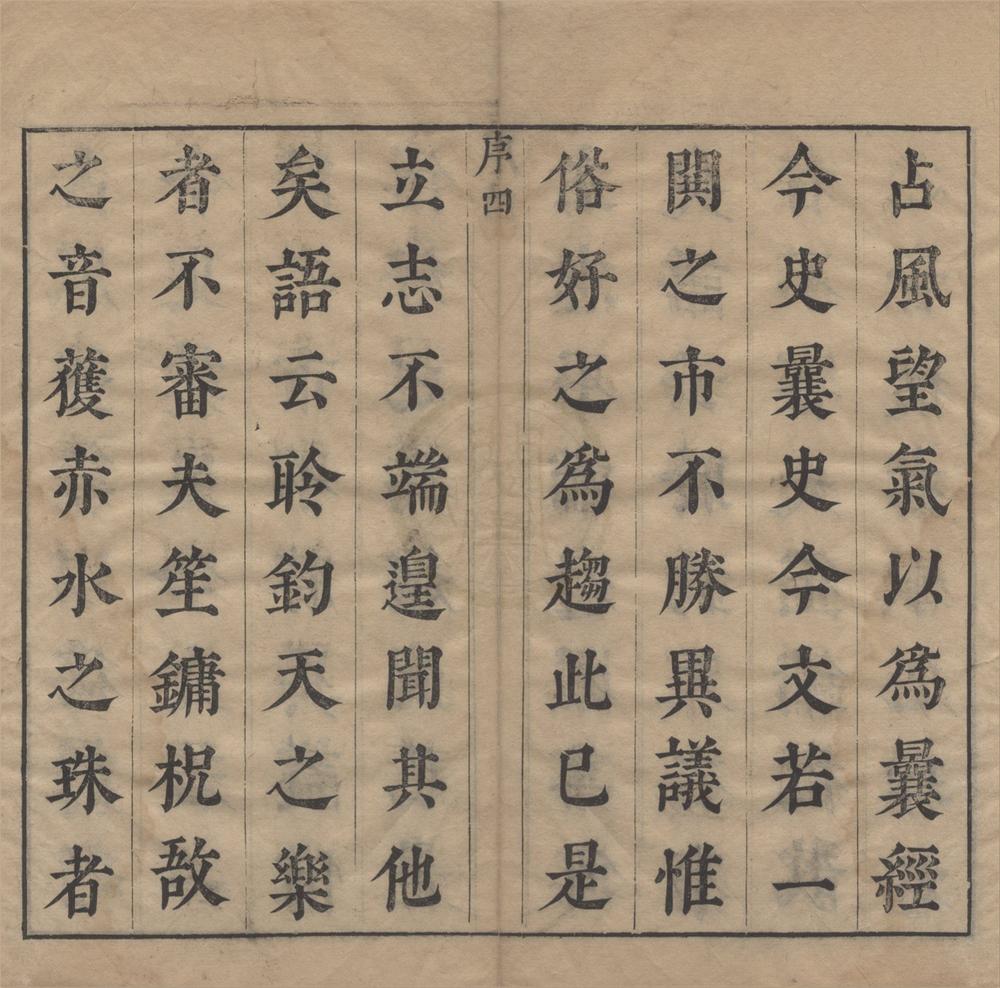 占風望氣以爲曩經
今史曩史今文若一
閧之市不勝異議惟
俗好之爲趨此已是
序四
立志不端遑聞其他
矣語云聆鈞天之樂
者不審夫笙鏞柷敔
之音獲赤水之珠者